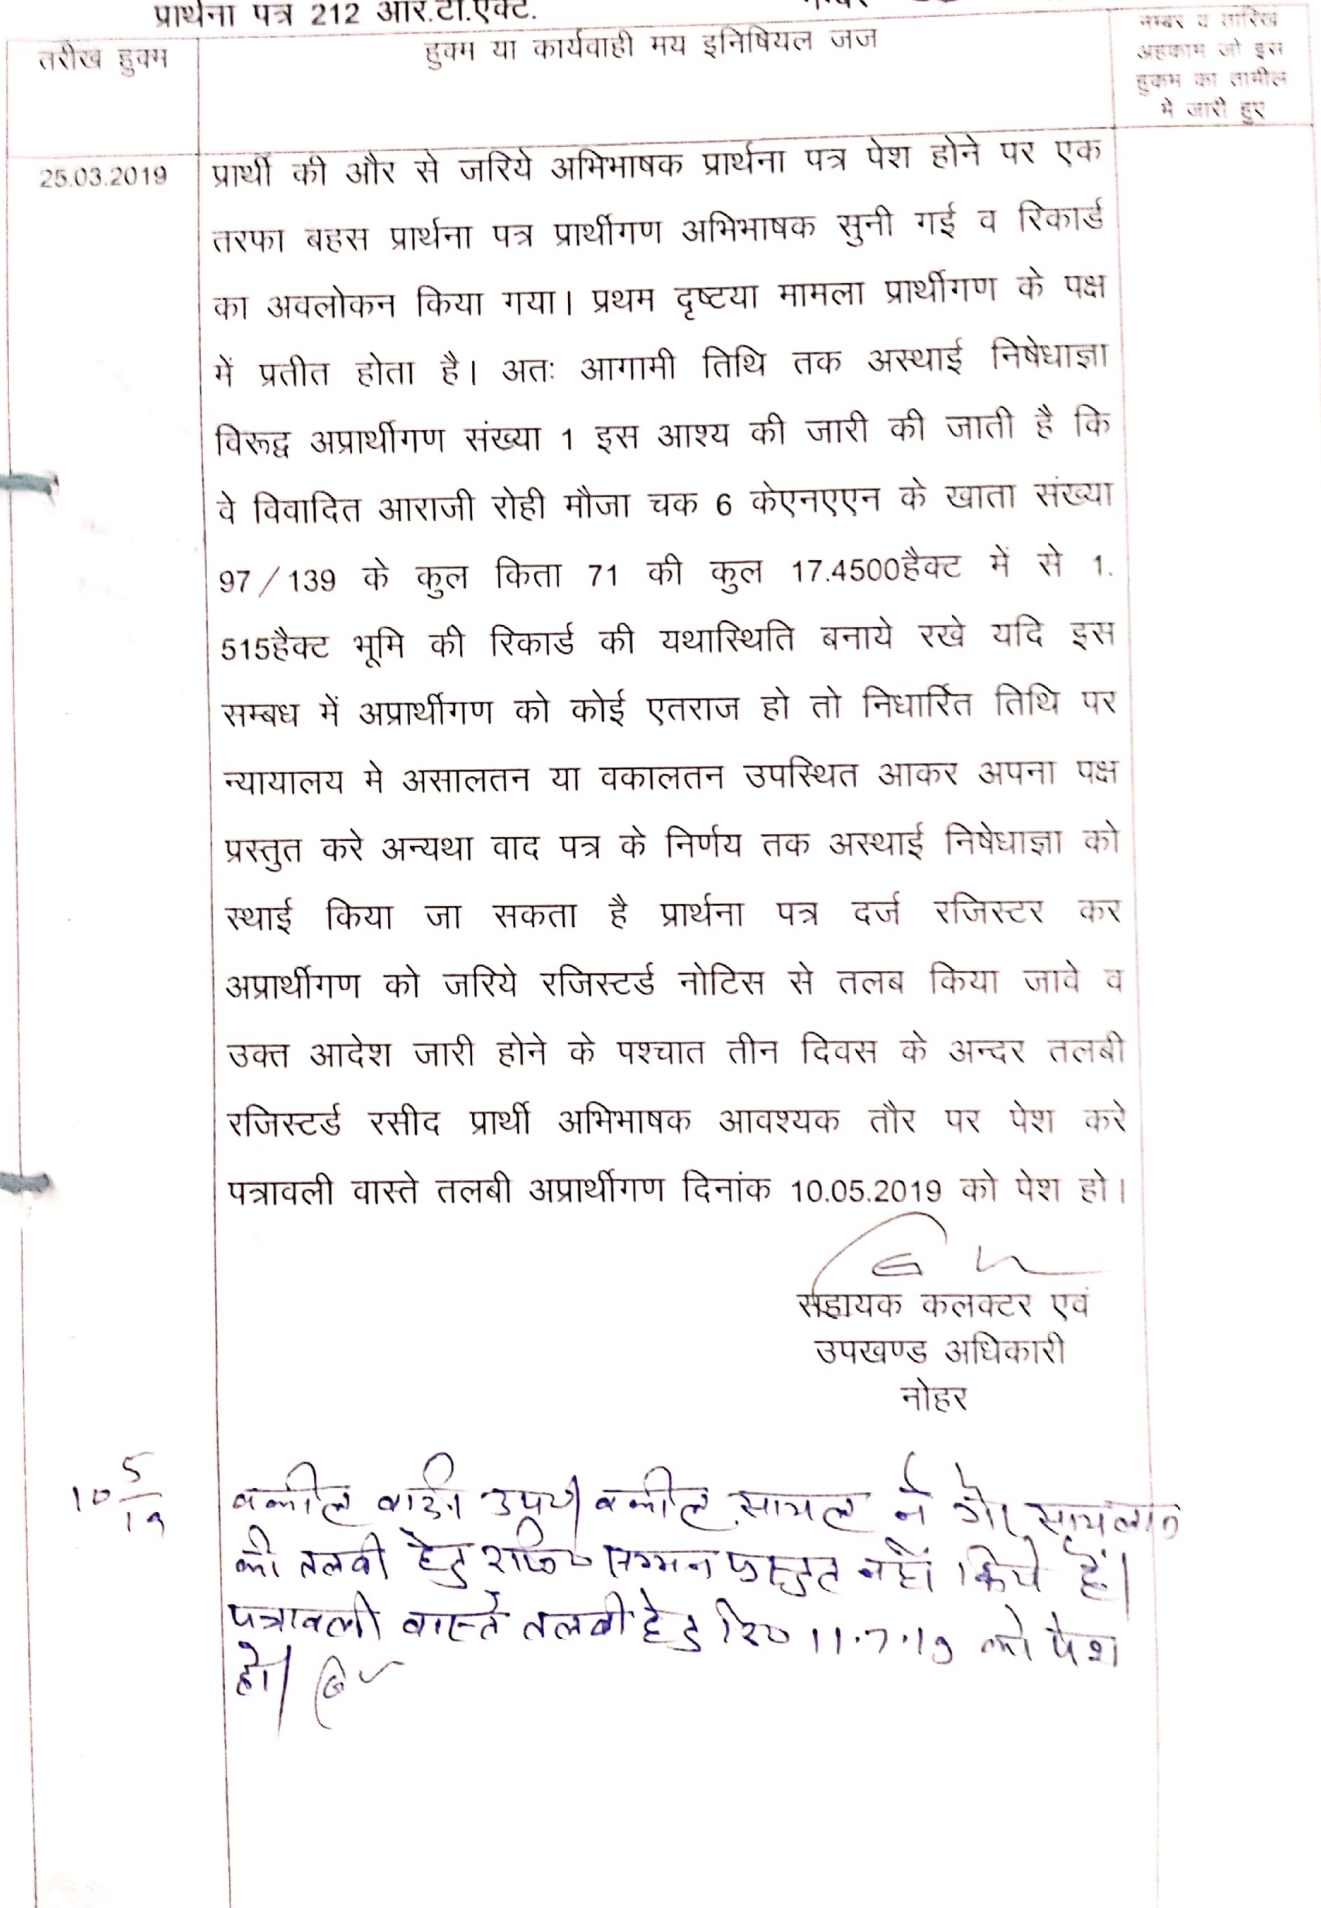 प्रार्थना पत्र 212 आर.टी.एक्ट.
तरीख हुक्म
हुक्म या कार्यवाही मय इनिषियल जज
नम्बर व तारिख
अहकाम जो इस
हुकम का तामील
मे जारी हुए
25.03.2019
प्रार्थी की और से जरिये अभिभाषक प्रार्थना पत्र पेश होने पर एक
तरफा बहस प्रार्थना पत्र प्रार्थीगण अभिभाषक सुनी गई व रिकार्ड
का अवलोकन किया गया। प्रथम दृष्टया मामला प्रार्थीगण के पक्ष
में प्रतीत होता है। अतः आगामी तिथि तक अस्थाई निषेधाज्ञा
विरूद्व अप्रार्थीगण संख्या 1 इस आश्य की जारी की जाती है कि
वे विवादित आराजी रोही मौजा चक 6 केएनएएन के खाता संख्या
97/139 के कुल किता 71 की कुल 17.4500हैक्ट में से 1.
515हैक्ट भूमि की रिकार्ड की यथास्थिति बनाये रखे यदि इस
सम्बध में अप्रार्थीगण को कोई एतराज हो तो निधार्रित तिथि पर
न्यायालय मे असालतन या वकालतन उपस्थित आकर अपना पक्ष
प्रस्तुत करे अन्यथा वाद पत्र के निर्णय तक अस्थाई निषेधाज्ञा को
स्थाई किया जा सकता है प्रार्थना पत्र दर्ज रजिस्टर कर
अप्रार्थीगण को जरिये रजिस्टर्ड नोटिस से तलब किया जावे व
उक्त आदेश जारी होने के पश्चात तीन दिवस के अन्दर तलबी
रजिस्टर्ड रसीद प्रार्थी अभिभाषक आवश्यक तौर पर पेश करे
पत्रावली वास्ते तलबी अप्रार्थीगण दिनांक 10.05.2019 को पेश हो।
सहायक कलक्टर एवं
उपखण्ड अधिकारी
नोहर
10 5/19
वकील वादी उप०। वकील सायल ने गैर सायलान
की तलबी हेतु रजि० सम्मन प्रस्तुत नहीं किये हैं।
पत्रावली वास्ते तलबी हेतु दि० 11.7.19 को पेश
हो।